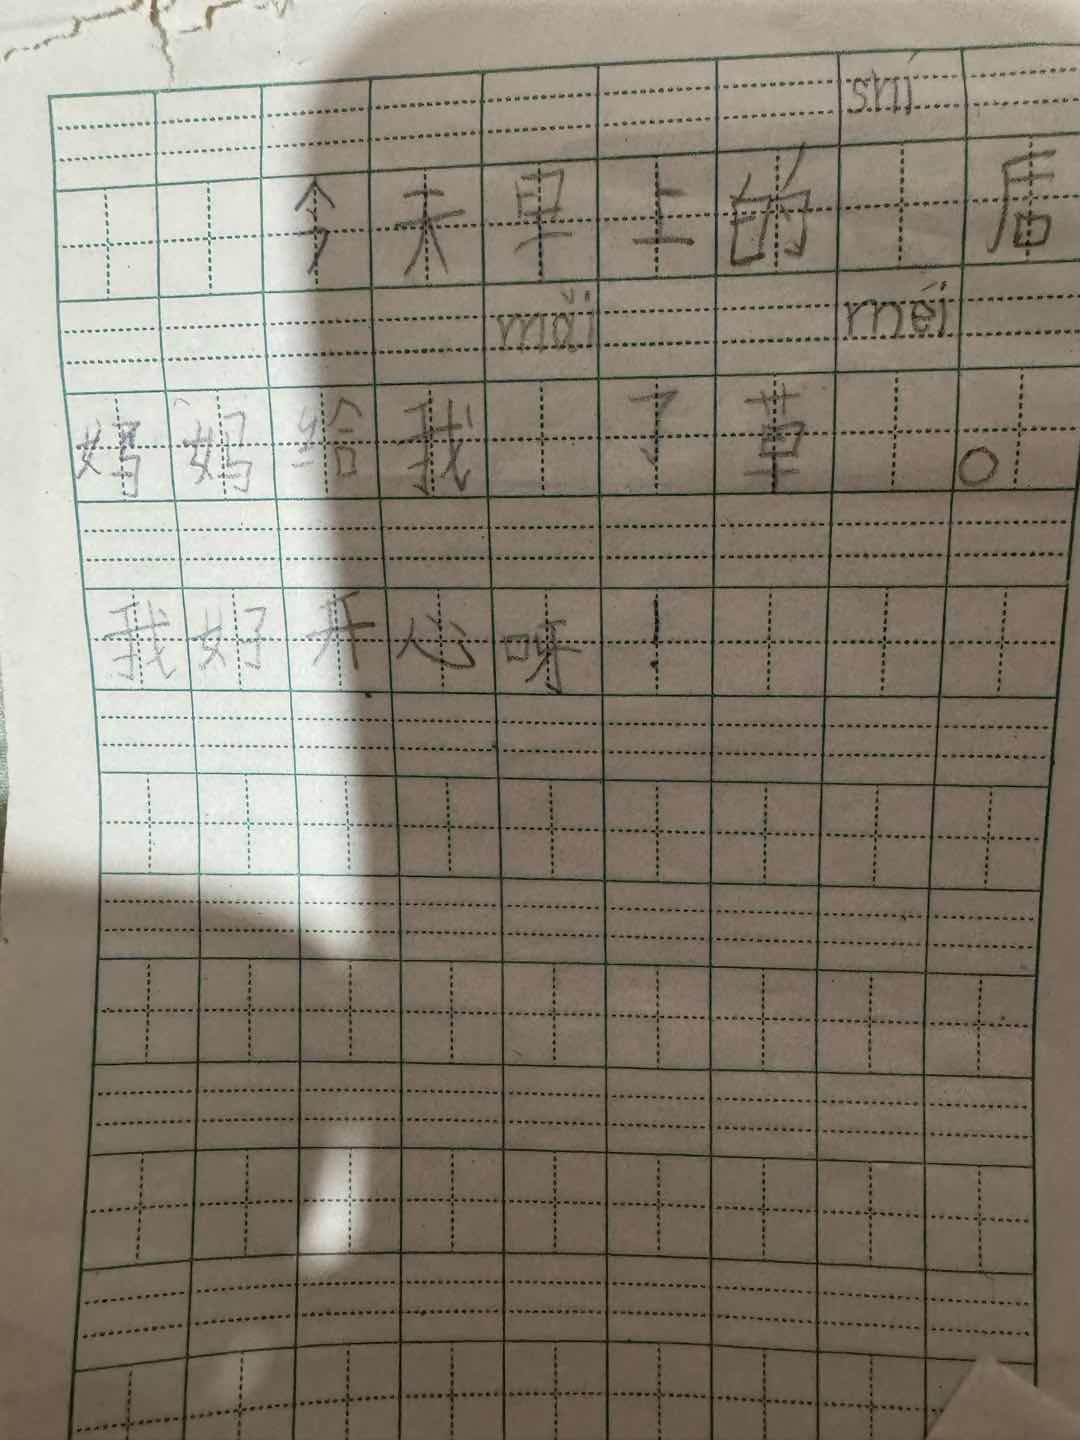 shí
今天早上的 后
mǎi méi
妈妈给我 了草 。
我好开心呀！